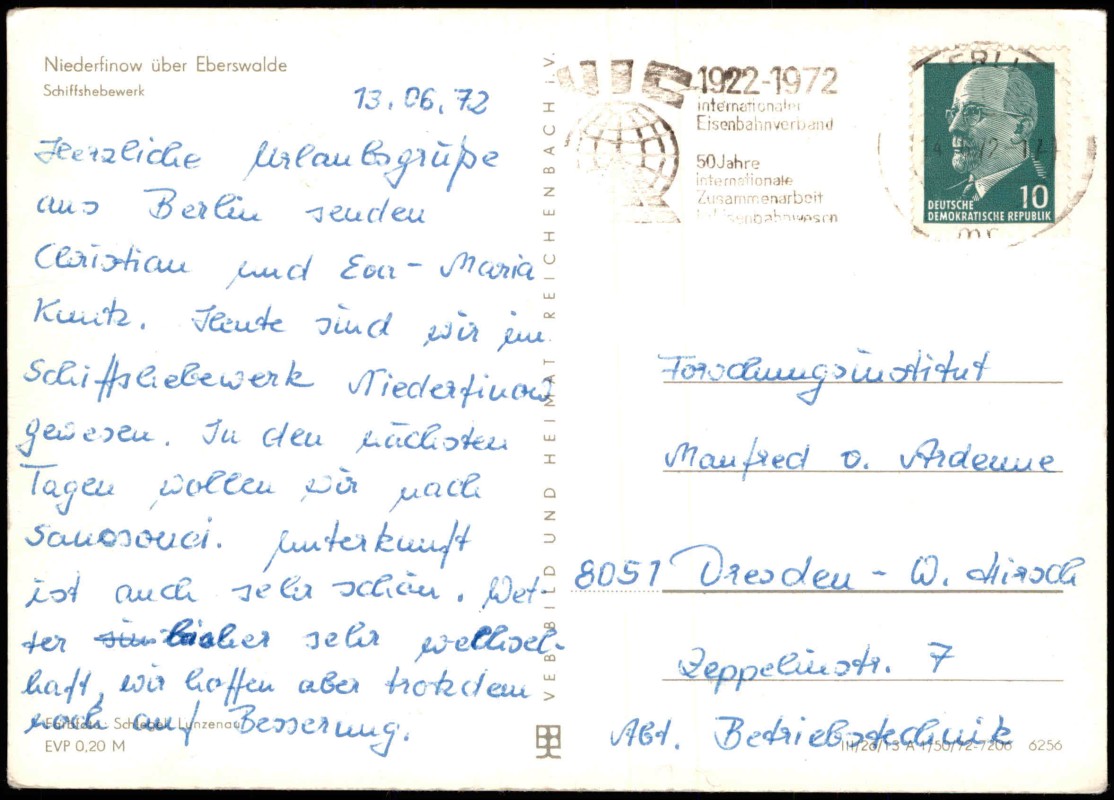 Niederfinow über Eberswalde
Schiffshebewerk
13.06.72
Herzliche Urlaubsgrüße
aus Berlin senden
Christian und Eva-Maria
Kuntz. Heute sind wir im
Schiffshebewerk Niederfinow
gewesen. In den nächsten
Tagen wollen wir nach
Sanssouci. Unterkunft
ist auch sehr schön. Wet-
ter bisher sehr wechsel-
haft, wir hoffen aber trotzdem
noch auf Besserung.
Farbfoto: Schlegel, Lunzenau
EVP 0,20 M
VEB BILD UND HEIMAT REICHENBACH I. V.
UIC
1922-1972
internationaler
Eisenbahnverband
50 Jahre
internationale
Zusammenarbeit
im Eisenbahnwesen
DEUTSCHE
DEMOKRATISCHE REPUBLIK
10
Forschungsinstitut
Manfred v. Ardenne
8051 Dresden - W. Hirsch
Zeppelinstr. 7
Abt. Betriebstechnik
III/26/13 A 1/50/72-7206 6256